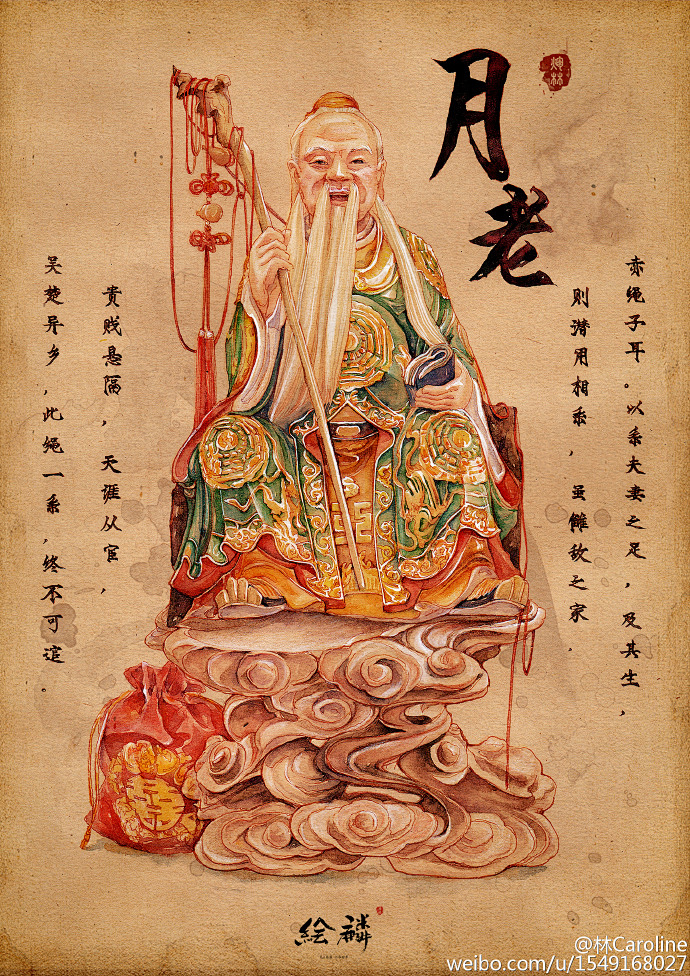 月老
赤绳子耳。以系夫妻之足，及其生，
则潜用相系，虽雠敌之家，
贵贱悬隔，天涯从宦，
吴楚异乡，此绳一系，终不可逭。
绘麟
@林Caroline
weibo.com/u/1549168027